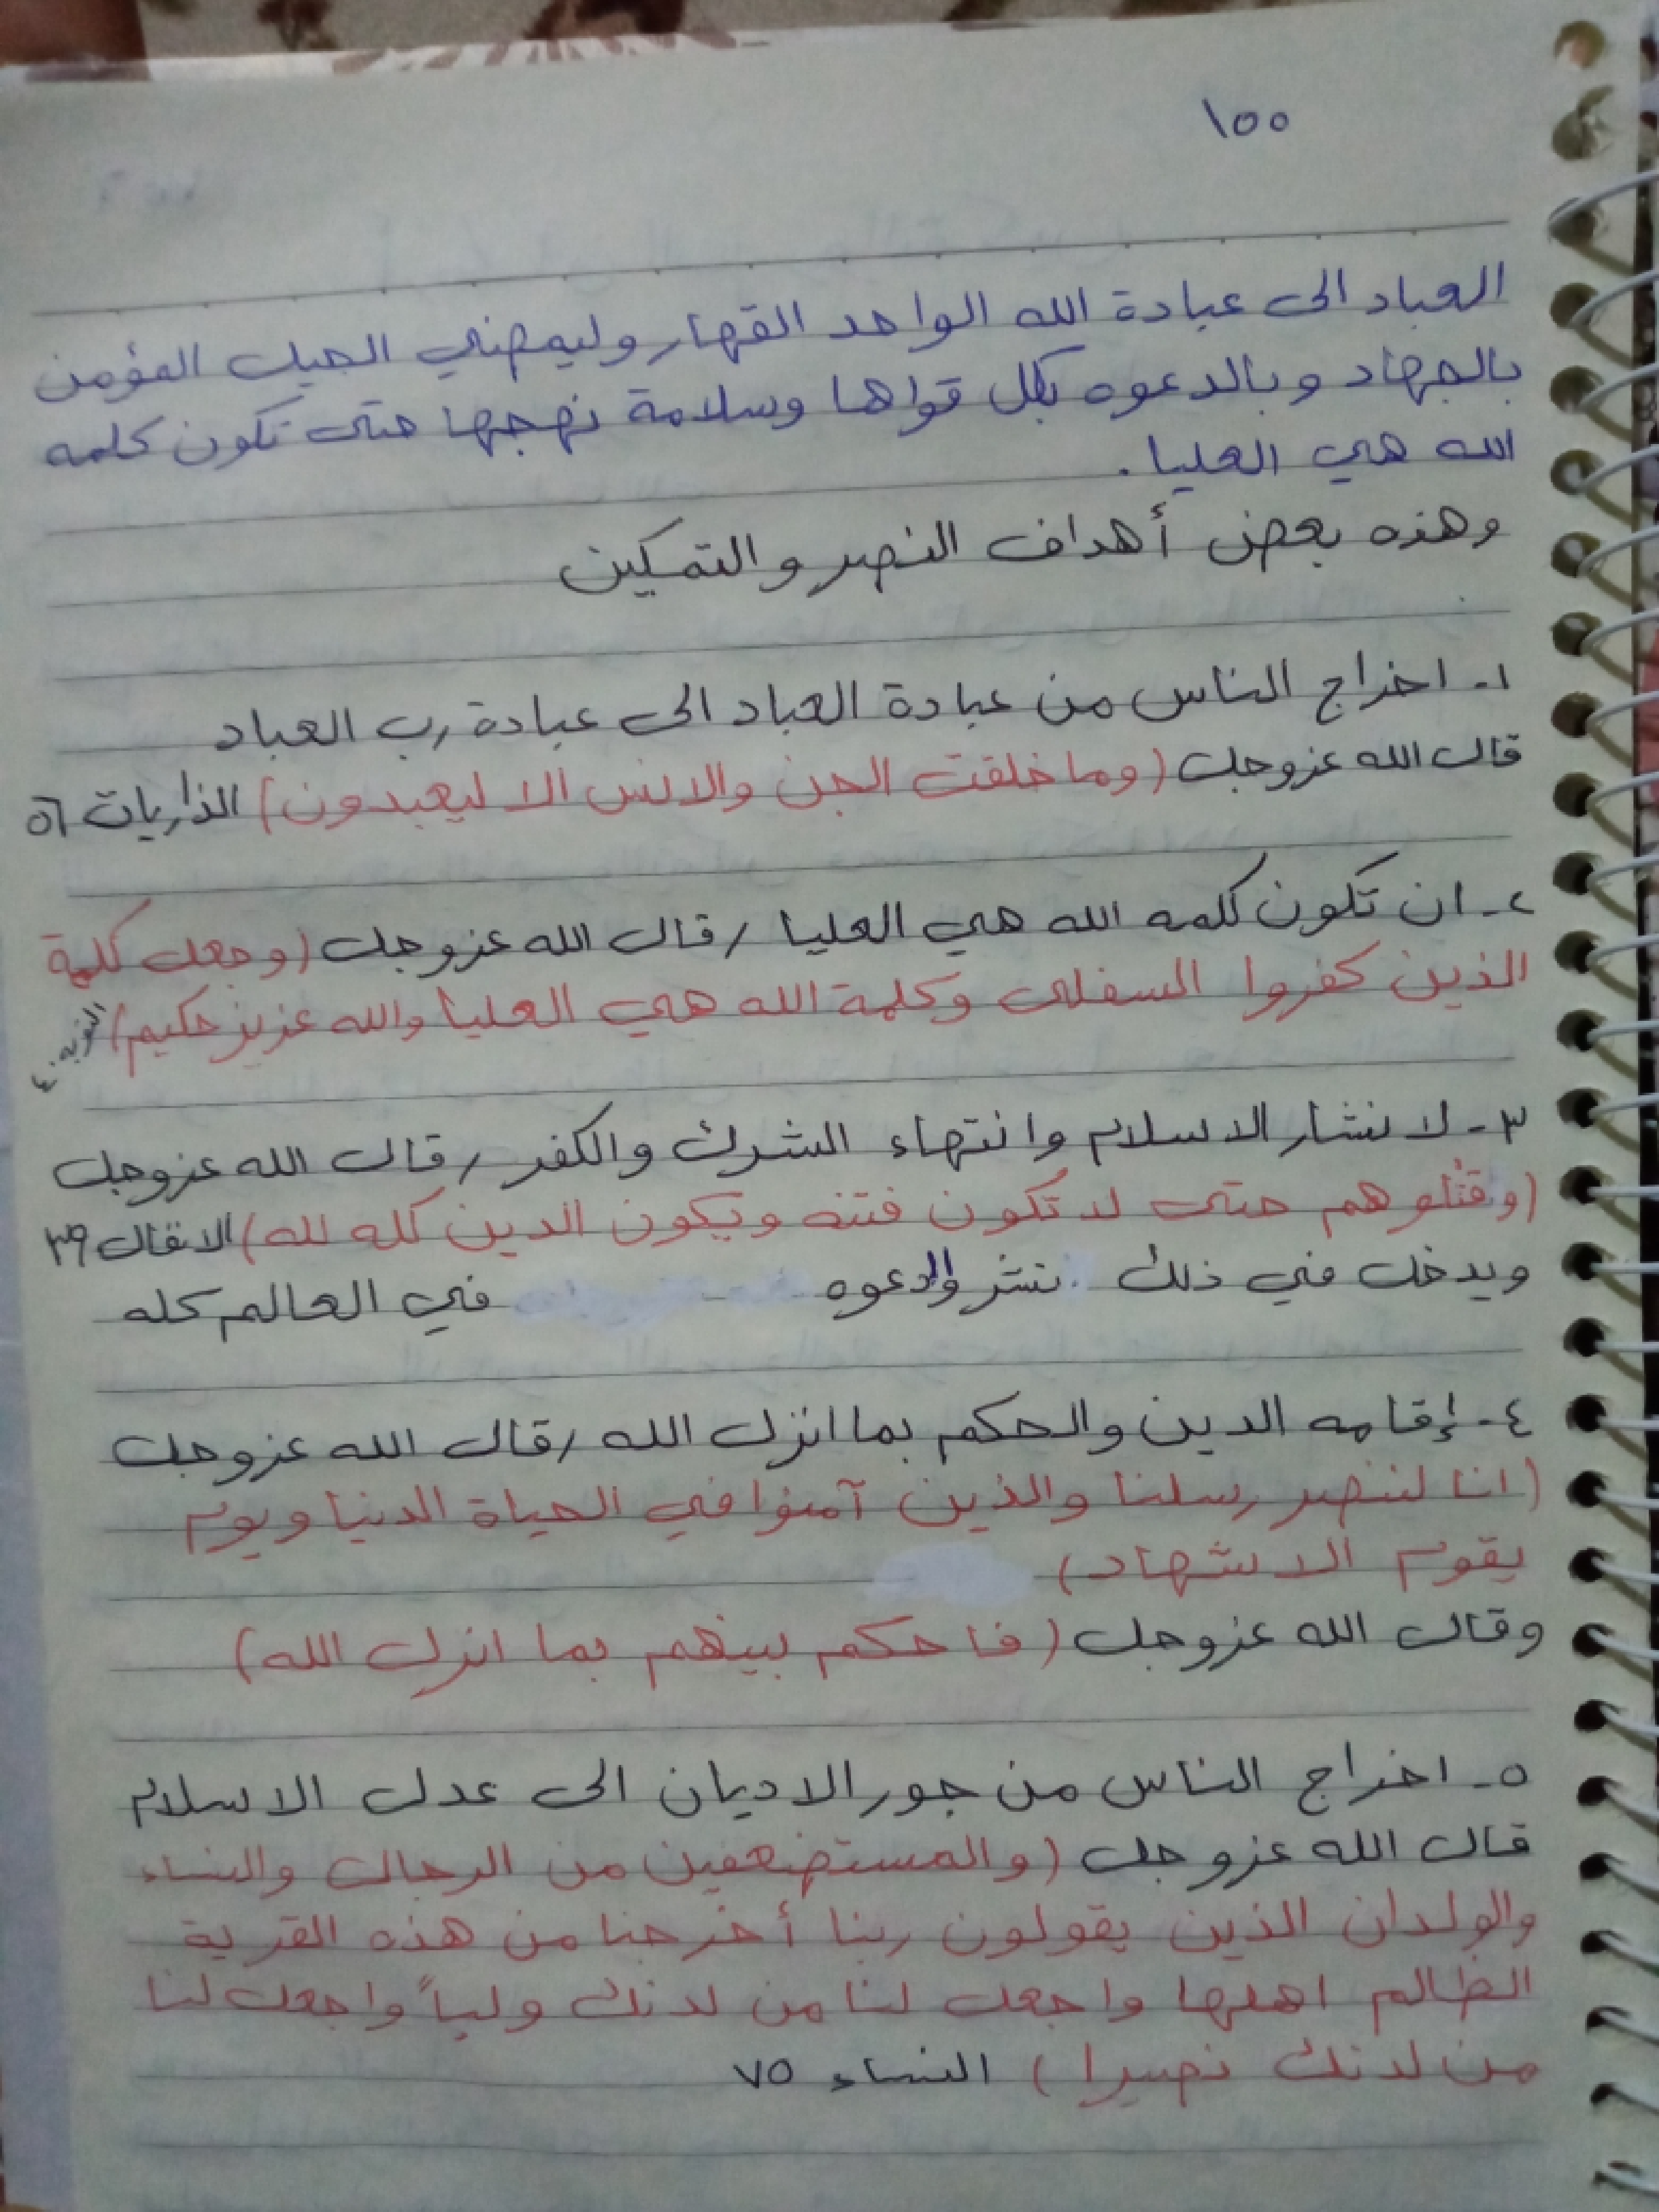 ١٥٥
العباد الى عبادة الله الواحد القهار وليمضي الجيل المؤمن
بالجهاد وبالدعوه بكل قواها وسلامة نهجها حتى تكون كلمه
الله هي العليا.
وهذه بعض أهداف النصر والتمكين
١- اخراج الناس من عبادة العباد الى عبادة رب العباد
قال الله عزوجل (وما خلقت الجن والانس الا ليعبدون) الذاريات ٥٦
٢- ان تكون كلمه الله هي العليا, قال الله عزوجل (وجعل كلمة
الذين كفروا السفلى وكلمة الله هي العليا والله عزيز حكيم) التوبه ٤٠
٣- لانشار الاسلام وانتهاء الشرك والكفر, قال الله عزوجل
(وقتلوهم حتى لا تكون فتنه ويكون الدين كله لله) الانفال ٣٩
ويدخل في ذلك نشر والدعوه في العالم كله
٤- إقامه الدين والحكم بما انزل الله, قال الله عزوجل
(انا لننصر رسلنا والذين آمنوا في الحياة الدنيا ويوم
يقوم الاشهاد)
وقال الله عزوجل (فاحكم بينهم بما انزل الله)
٥- اخراج الناس من جور الاديان الى عدل الاسلام
قال الله عزوجل (والمستضعفين من الرجال والنساء
والولدان الذين يقولون ربنا أخرجنا من هذه القرية
الظالم اهلها واجعل لنا من لدنك ولياً واجعل لنا
من لدنك نصيرا) النساء ٧٥